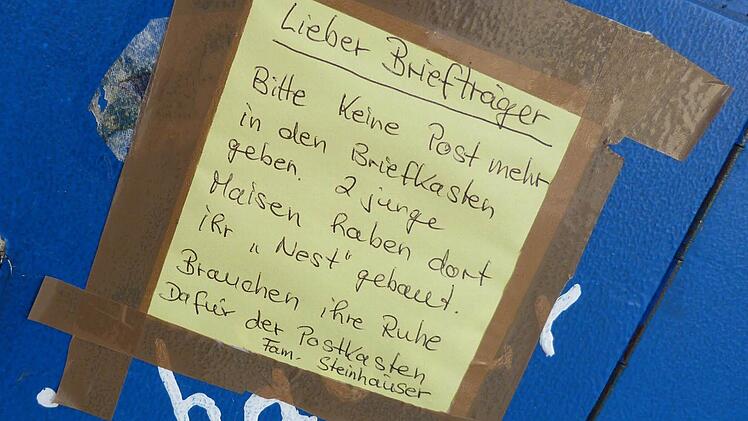 Lieber Briefträger
Bitte keine Post mehr
in den Briefkasten
geben. 2 junge
Maisen haben dort
ihr „Nest" gebaut.
Brauchen ihre Ruhe
Dafür der Postkasten
Fam. Steinhäuser